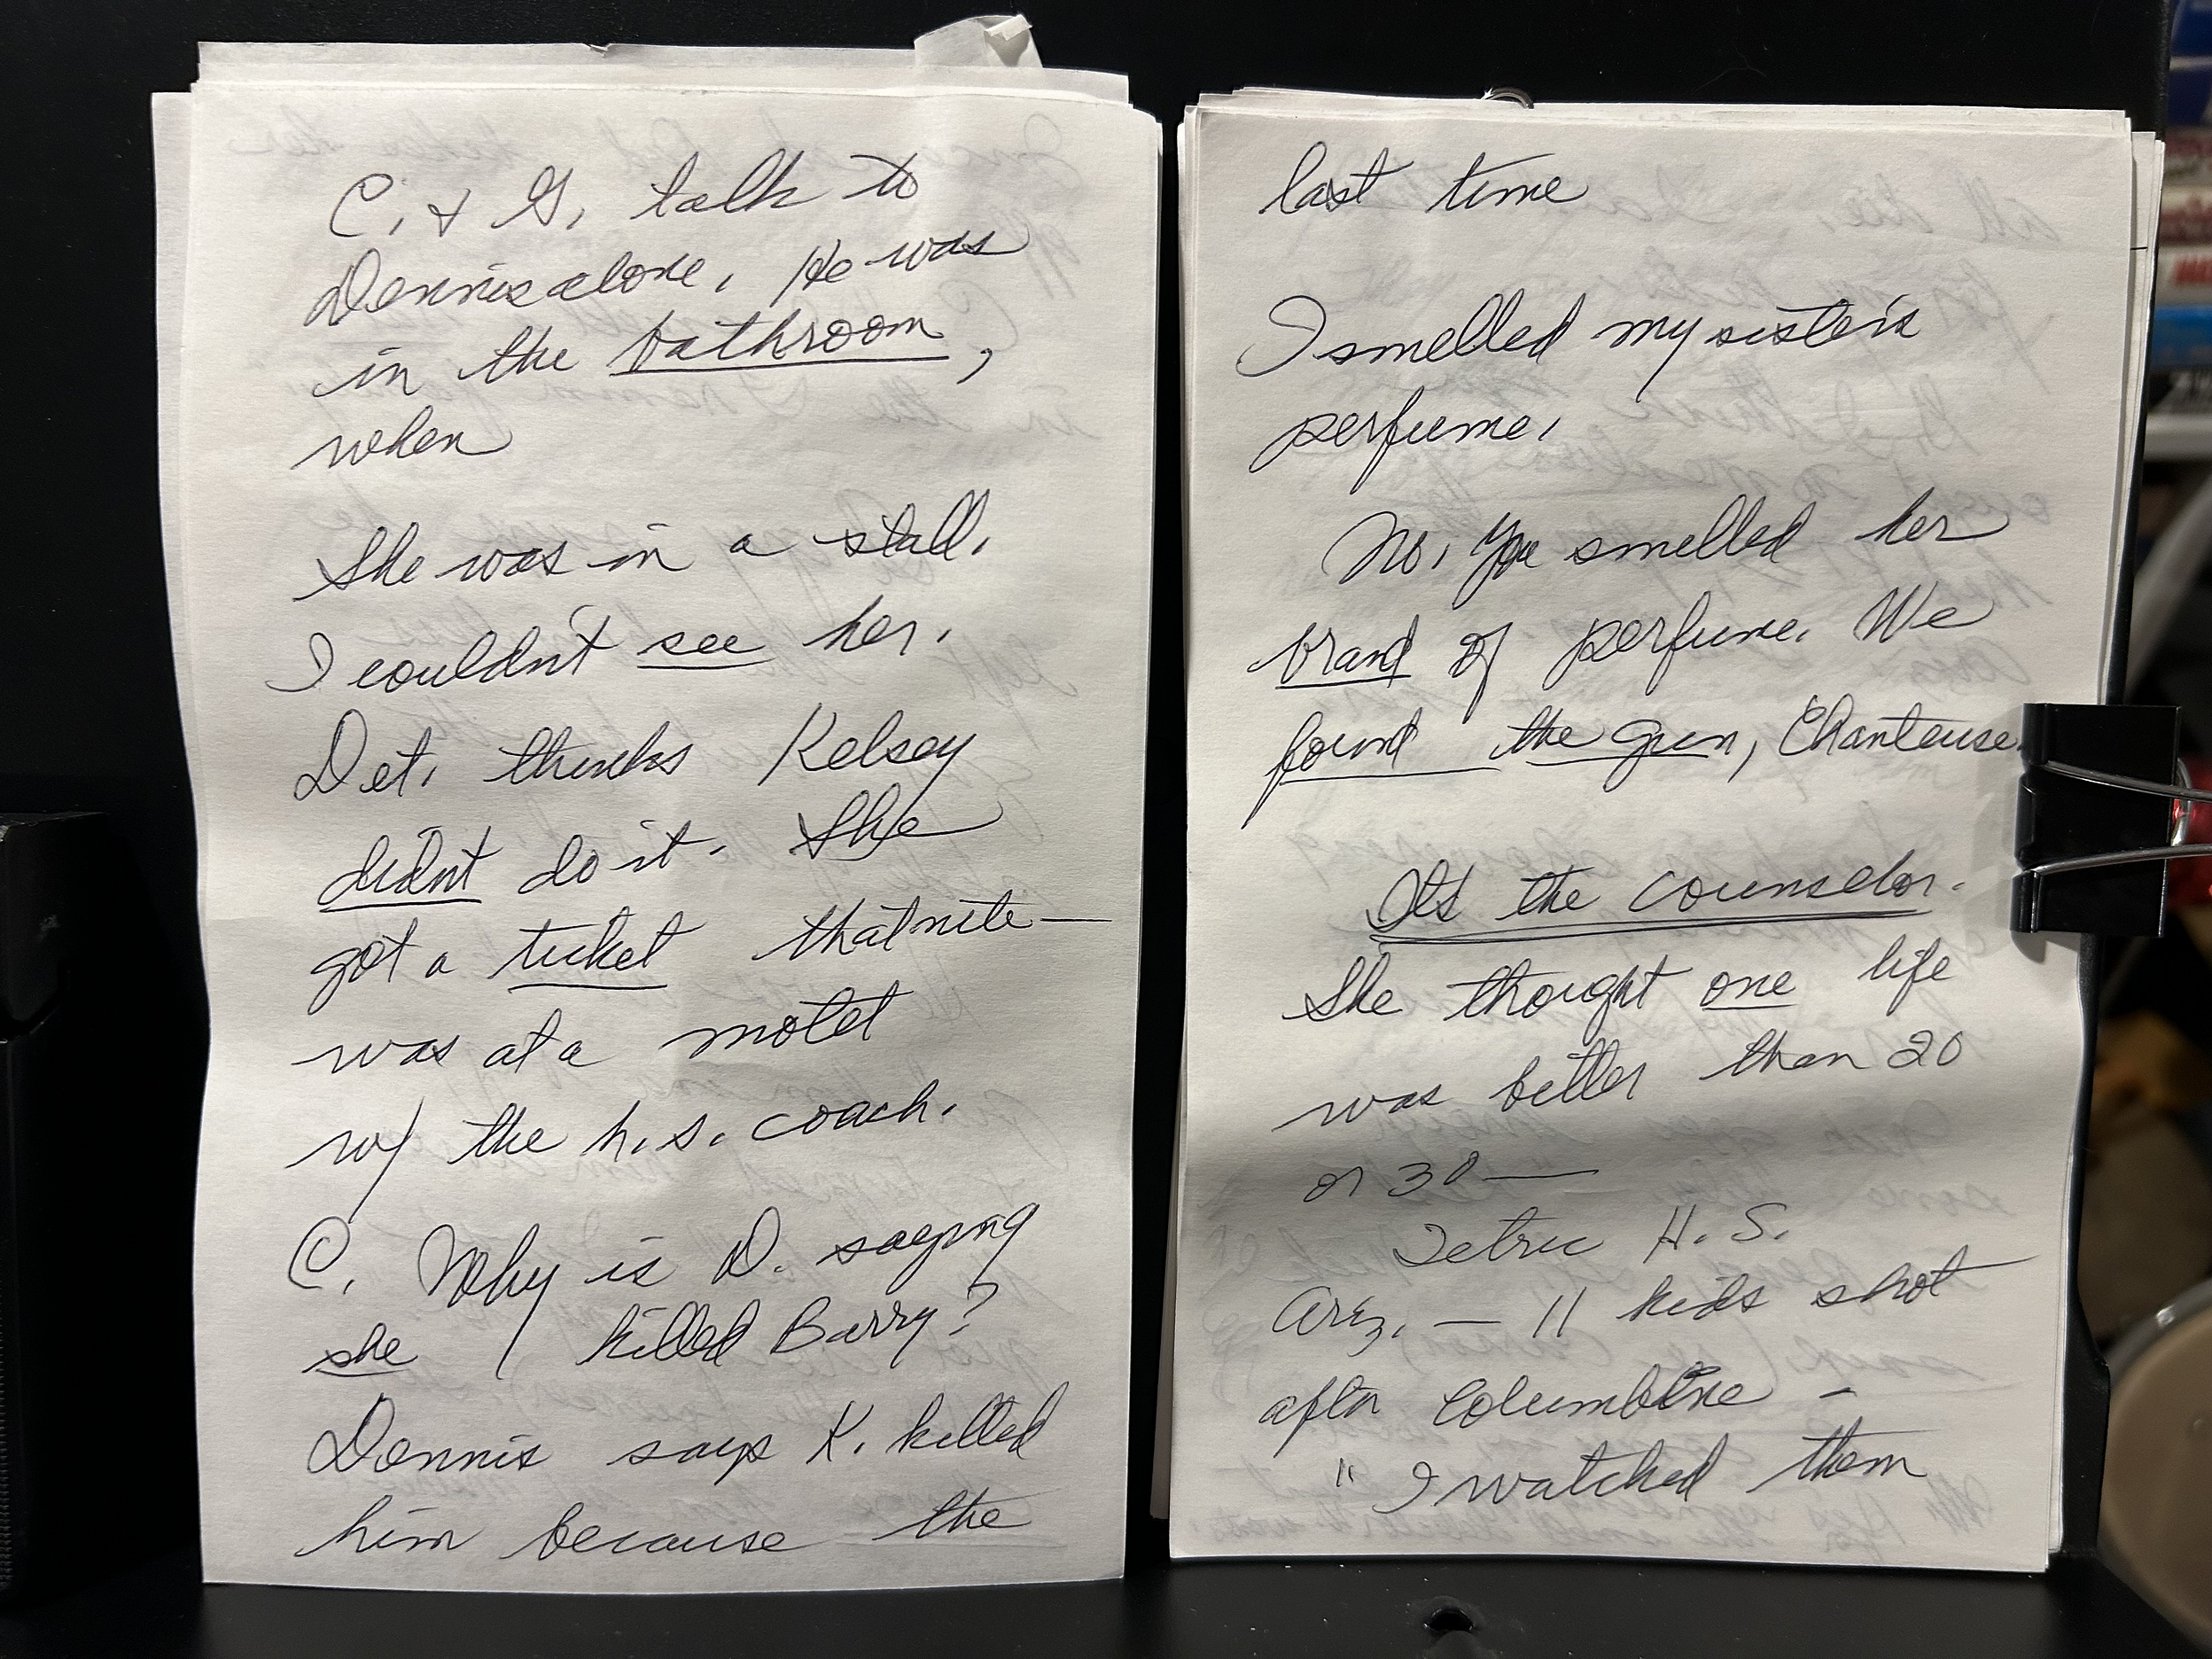 C. & G. talk to
Dennis alone. He was
in the bathroom,
when
She was in a stall.
I couldn't see her.
Det. thinks Kelsey
didn't do it. She
got a ticket that nite—
was at a motel
w/ the h.s. coach.
C. Why is D. saying
she killed Barry?
Dennis says K. killed
him because the
last time
I smelled my sister's
perfume.
No. You smelled her
brand of perfume. We
found the gun, Chanteuse.
It's the counselor.
She thought one life
was better than 20
or 30—
Tetric H.S.
Ariz. — 11 kids shot
after Columbine —
" I watched them